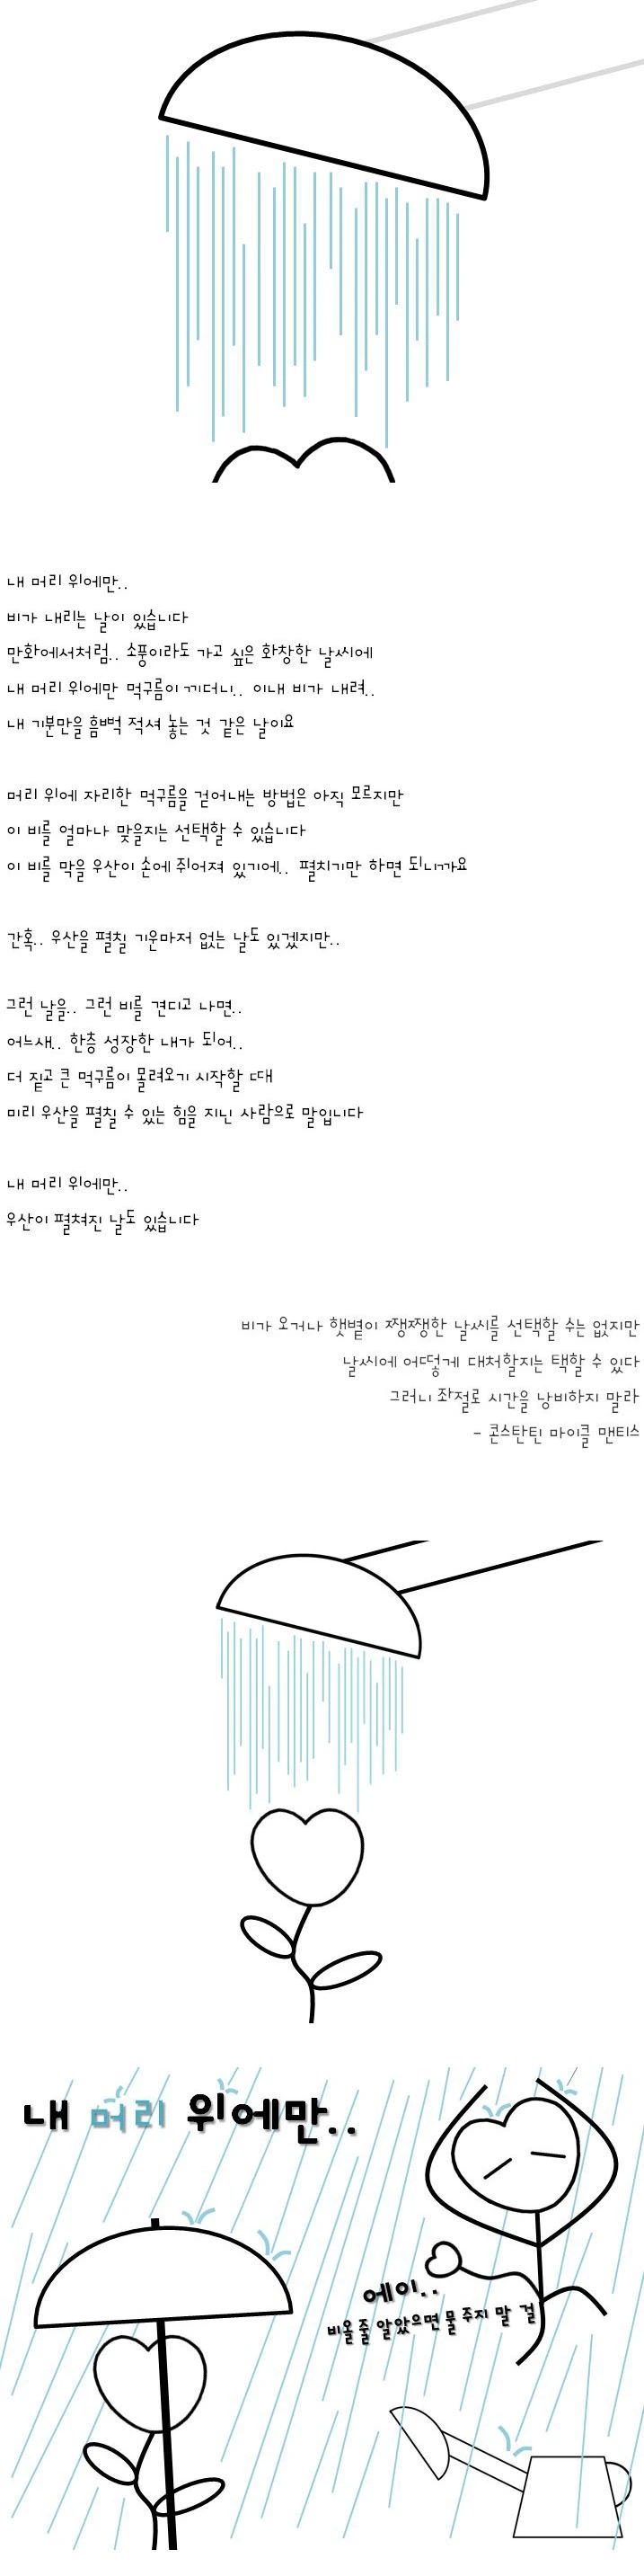 내 머리 위에만..
비가 내리는 날이 있습니다
만화에서처럼.. 소풍이라도 가고 싶은 화창한 날씨에
내 머리 위에만 먹구름이 끼더니.. 이내 비가 내려..
내 기분만을 흠뻑 적셔 놓는 것 같은 날이요
머리 위에 자리한 먹구름을 걷어내는 방법은 아직 모르지만
이 비를 얼마나 맞을지는 선택할 수 있습니다
이 비를 막을 우산이 손에 쥐어져 있기에.. 펼치기만 하면 되니까요
간혹.. 우산을 펼칠 기운마저 없는 날도 있겠지만..
그런 날을.. 그런 비를 견디고 나면..
어느새.. 한층 성장한 내가 되어..
더 짙고 큰 먹구름이 몰려오기 시작할 때
미리 우산을 펼칠 수 있는 힘을 지닌 사람으로 말입니다
내 머리 위에만..
우산이 펼쳐진 날도 있습니다
비가 오거나 햇볕이 쨍쨍한 날씨를 선택할 수는 없지만
날씨에 어떻게 대처할지는 택할 수 있다
그러니 좌절로 시간을 낭비하지 말라
- 콘스탄틴 마이클 맨티스
내 머리 위에만..
에이..
비올 줄 알았으면 물 주지 말 걸